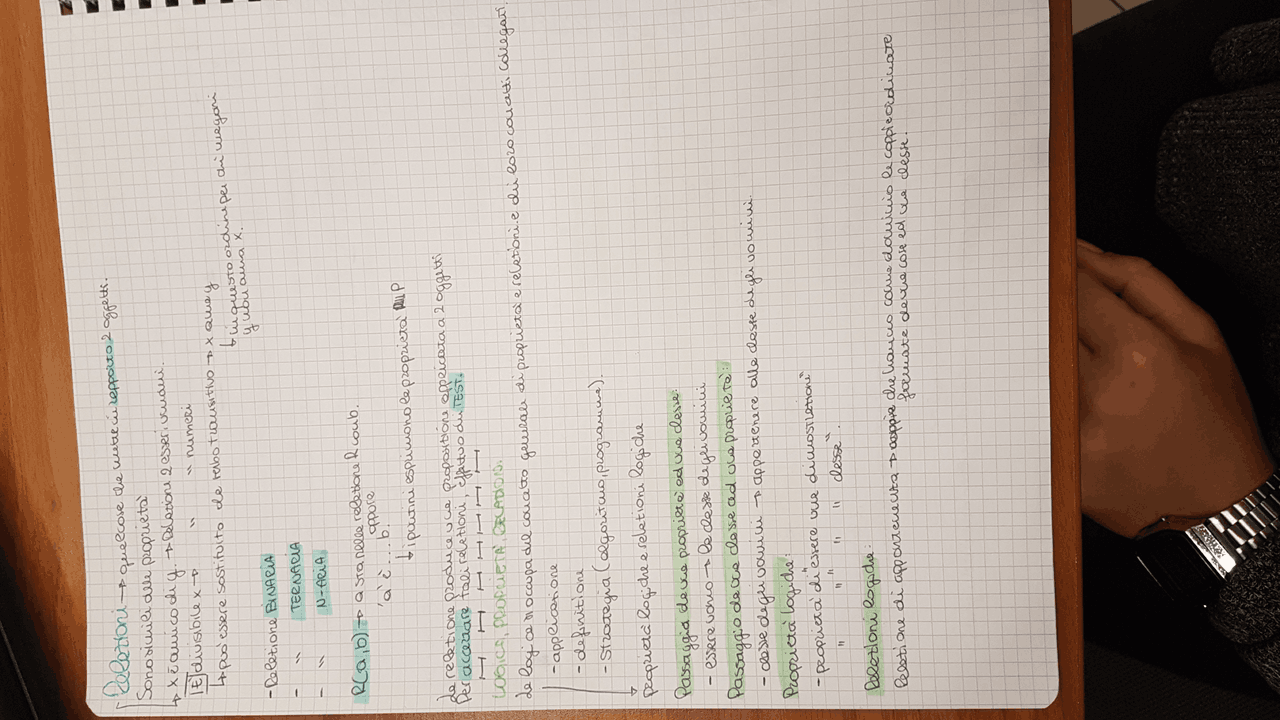 Relazioni → qualcosa che mette in rapporto 2 oggetti.
Sono simili alle proprietà
↳ x è amico di y → Relazioni 2 esseri umani.
E' divisibile x → " " numeri
↳ può essere sostituito da verbo transitivo → x ama y
↳ in questo ordine per cui magari
y non ama x.
- Relazione BINARIA
- " TERNARIA
- " N-ARIA
R(a,b) → a sta nella relazione R con b.
oppure
'a' è ... b.
↳ i puntini esprimono la proprietà P
La relazione produce una proposizione applicata a 2 oggetti
Per accertare tali relazioni, effettuo dei TEST.
LOGICA, PROPRIETÀ, RELAZIONI.
La logica si occupa del concetto generale di proprietà e relazioni e dei loro concetti collegati.
- applicazione
- definizione
- Strategia (algoritmo, programma).
Proprietà logiche e relazioni logiche
Passaggio da una proprietà ad una classe:
- essere uomo → la classe degli uomini
Passaggio da una classe ad una proprietà:
- classe degli uomini → appartenere alla classe degli uomini.
Proprietà logiche:
- proprietà di "essere una dimostrazione"
" " " " classe".
Relazioni logiche:
Relazione di appartenenza → che hanno come dominio le coppie ordinate
formate da una cosa ed una classe.